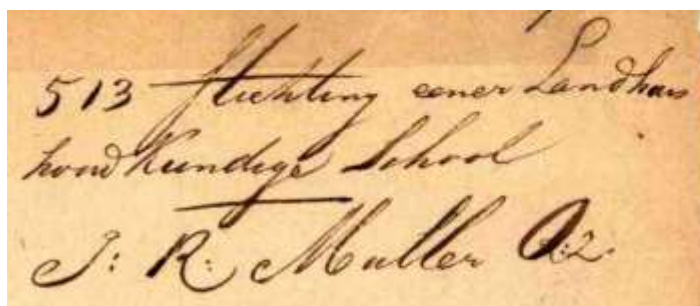 513 Stichting eener Landhuis
houdkundige School
J: R: Muller Q:2.